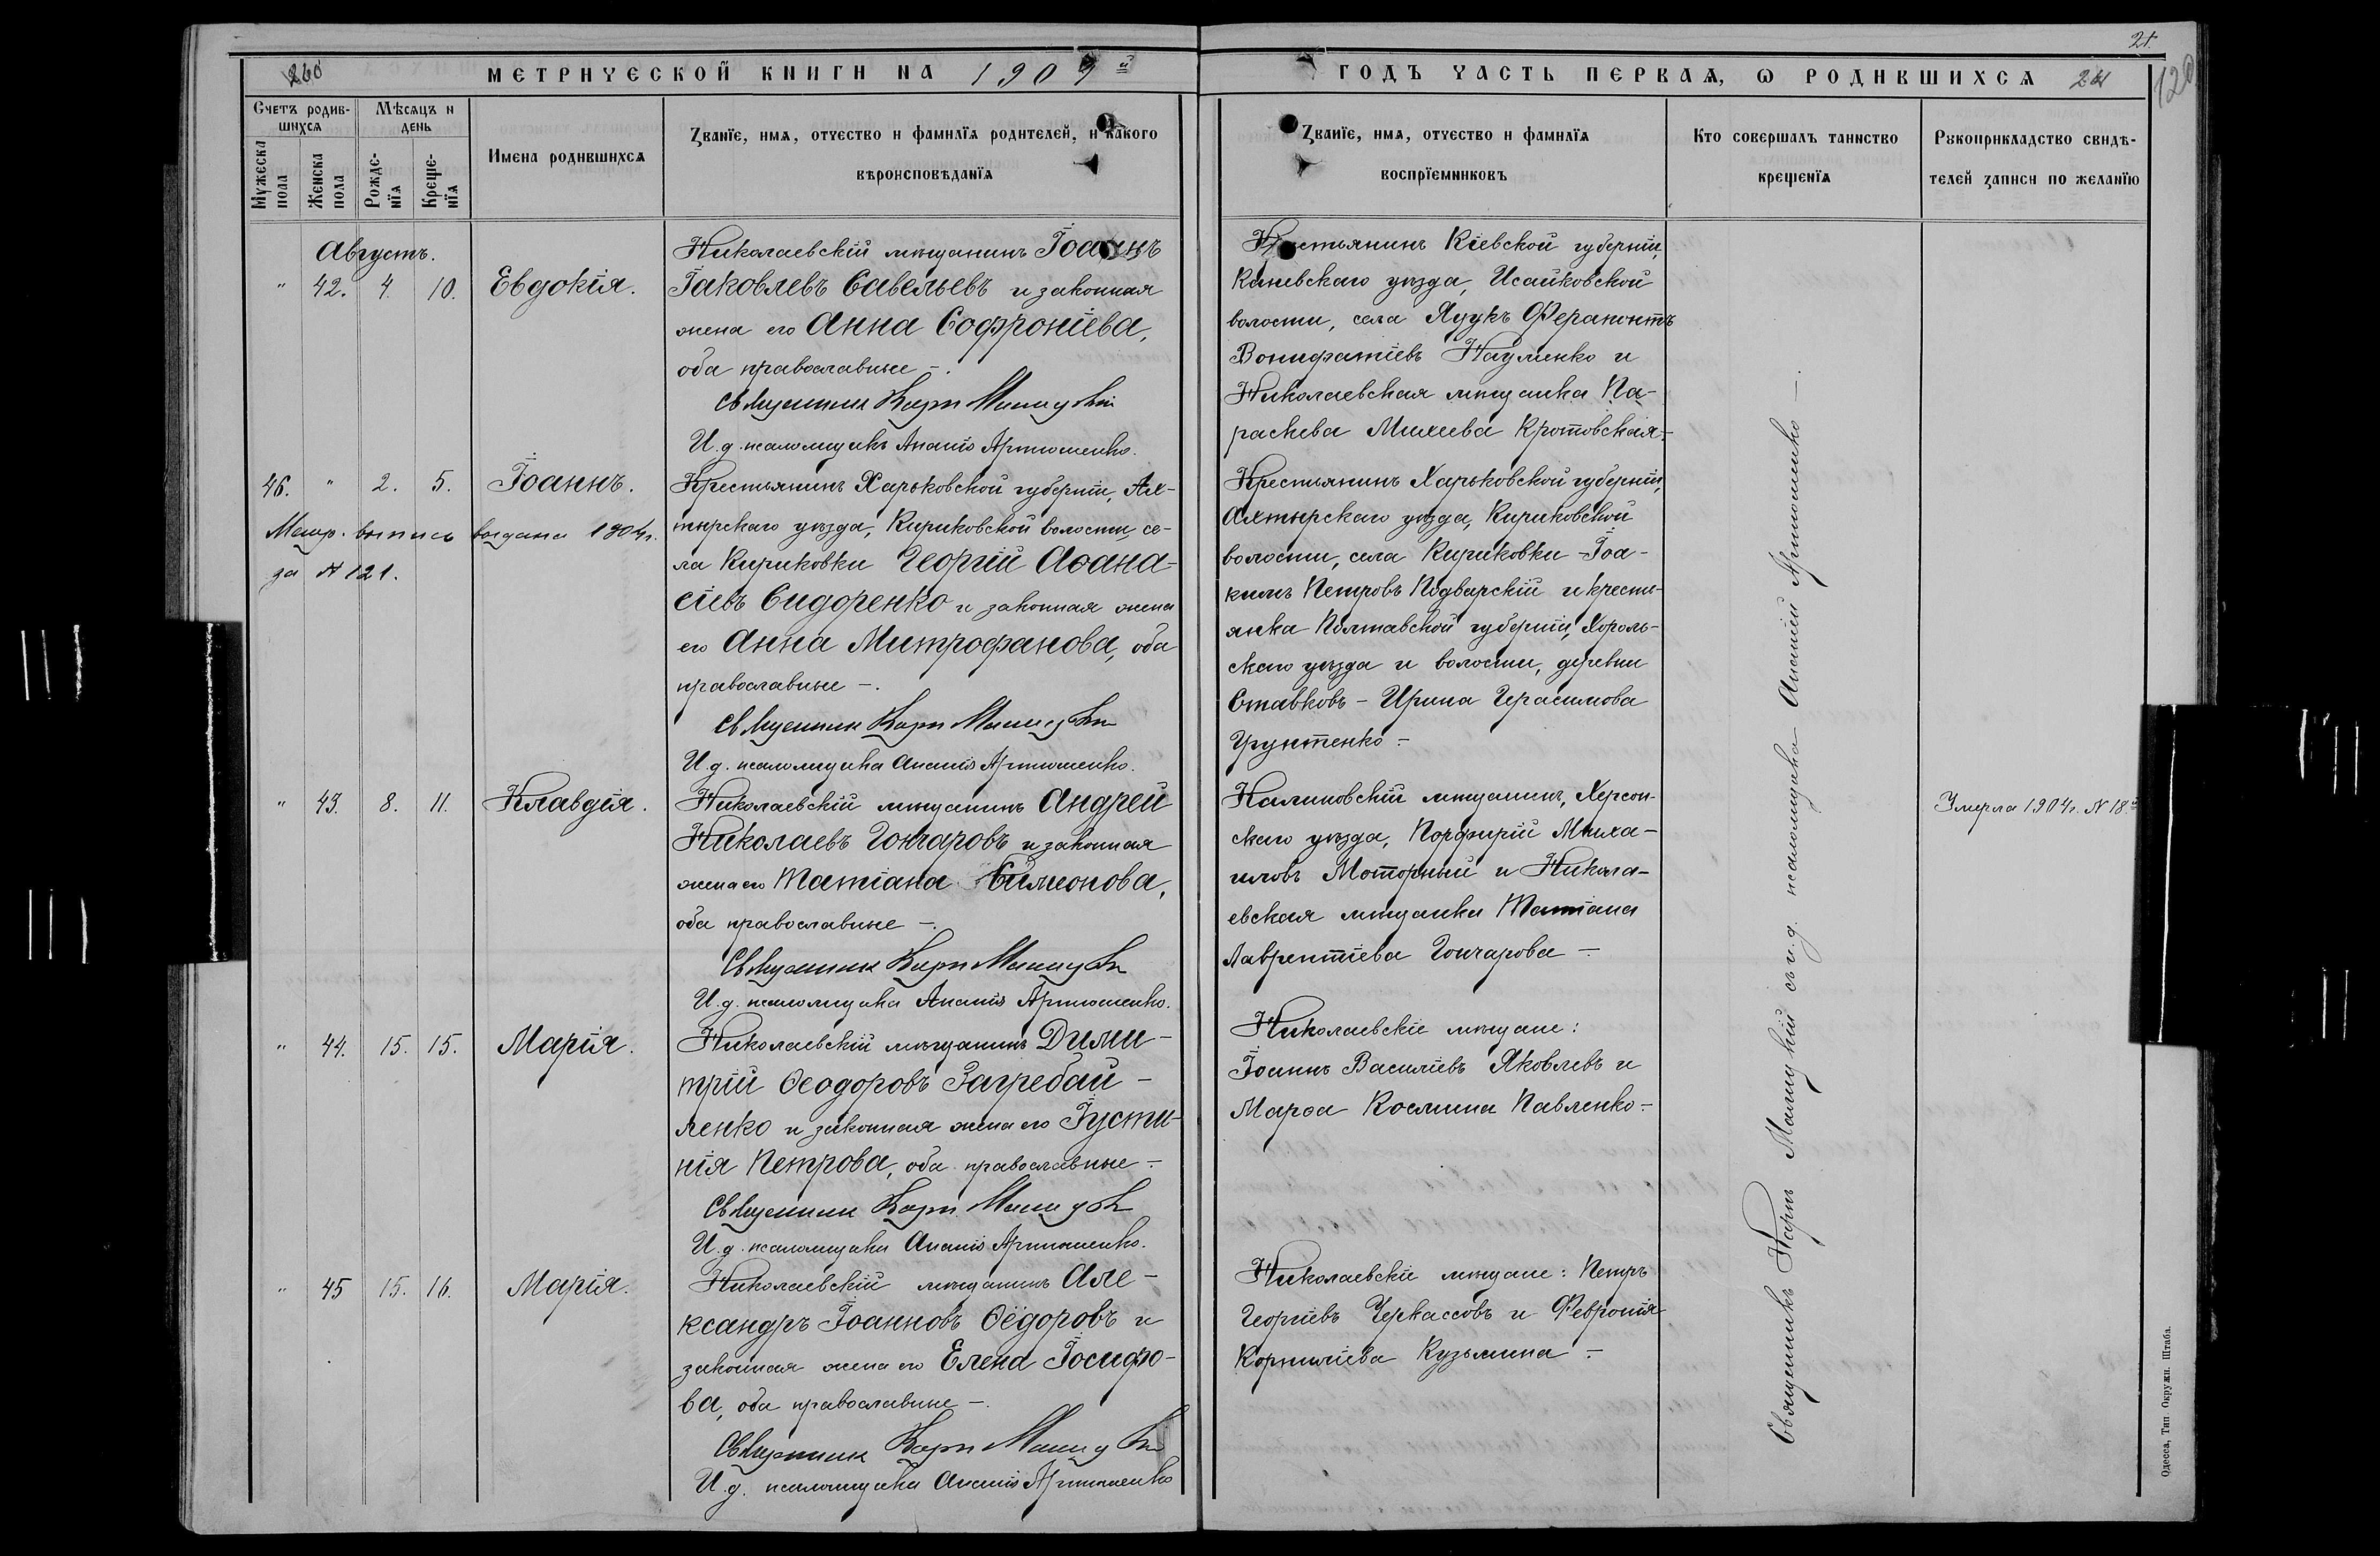 21.
260
МЕТРИЧЕСКОЙ КНИГИ НА 1903й
ГОДЪ ЧАСТЬ ПЕРВАЯ, Ѡ РОДИВШИХСЯ
120
Счетъ родив-
шихся
Мѣсяцъ и
день
Мужеска
пола
Женска
пола
Рожде-
нїя
Креще-
нїя
Имена родившихся
Званїе, имя, отчество и фамилїя родителей, и какого
вѣроисповѣданїя
Званїе, имя, отчество и фамилїя
воспрїемниковъ
Кто совершалъ таинство
крещенїя
Рукоприкладство свидѣ-
телей записи по желанїю
Августъ.
" 42. 4. 10. Евдокія.
Николаевскій мѣщанинъ Іоаннъ
Іаковлевъ Савельевъ и законная
жена его Анна Софроніева,
оба православные –.
Священникъ Карпъ
И. д. псаломщика Ананій Артюшенко.
Крестьянинъ Кіевской губерніи,
Каневскаго уѣзда, Исайковской
волости, села Яцукъ Ферапонтъ
Вонифатіевъ Науменко и
Николаевская мѣщанка Па-
раскева Михеева Кротовская –
46. " 2. 5. Іоаннъ.
Метр. выпись выдана 1904г.
за № 121.
Крестьянинъ Харьковской губерніи, Ах-
тырскаго уѣзда, Кириковской волости, се-
ла Кириковки Георгій Аѳана-
сіевъ Сидоренко и законная жена
его Анна Митрофанова, оба
православные –.
Священникъ Карпъ
И. д. псаломщика Ананій Артюшенко.
Крестьянинъ Харьковской губерніи,
Ахтырскаго уѣзда, Кириковской
волости, села Кириковки – Іоа-
кимъ Петровъ Подварскій и кресть-
янка Полтавской губерніи, Хороль-
скаго уѣзда и волости, деревни
Ставковъ – Ирина Герасимова
Грунтенко –
" 43. 8. 11. Клавдія.
Николаевскій мѣщанинъ Андрей
Николаевъ Гончаровъ и законная
жена его Татіана Симеонова,
оба православные –.
Священникъ Карпъ
И. д. псаломщика Ананій Артюшенко.
Калиновскій мѣщанинъ, Херсон-
скаго уѣзда, Порфирій Миха-
иловъ Моторный и Никола-
евская мѣщанка Татіана
Лаврентіева Гончарова –
Умерла 1904г. № 18й
" 44. 15. 15. Марія.
Николаевскій мѣщанинъ Дими-
трій Ѳеодоровъ Загребай-
ленко и законная жена его Іусти-
нія Петрова, оба православные –
Священникъ Карпъ
И. д. псаломщика Ананій Артюшенко.
Николаевскіе мѣщане:
Іоаннъ Василіевъ Яковлевъ и
Марѳа Космина Павленко –
" 45 15. 16. Марія.
Николаевскій мѣщанинъ Але-
ксандръ Іоанновъ Ѳёдоровъ и
законная жена его Елена Іосифо-
ва, оба православные –.
Священникъ Карпъ
И. д. псаломщика Ананій Артюшенко
Николаевскіе мѣщане: Петръ
Георгіевъ Черкассовъ и Февронія
Корниліева Кузьмина –
Священникъ Карпъ съ и. д. псаломщика Ананій Артюшенко –.
Одесса, Тип Окружн. Штаба.